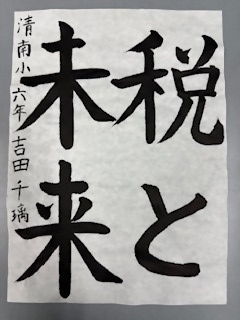 税と
未来
清南小 六年 吉田 千璃